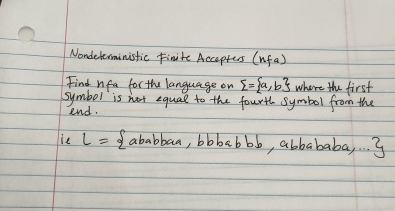 Nondeterministic Finite Accepters (nfa)
Find nfa for the language on Σ={a,b} where the first
symbol is not equal to the fourth symbol from the
end.
ie L = {ababbaa, bbbabbb, abbababa,...}